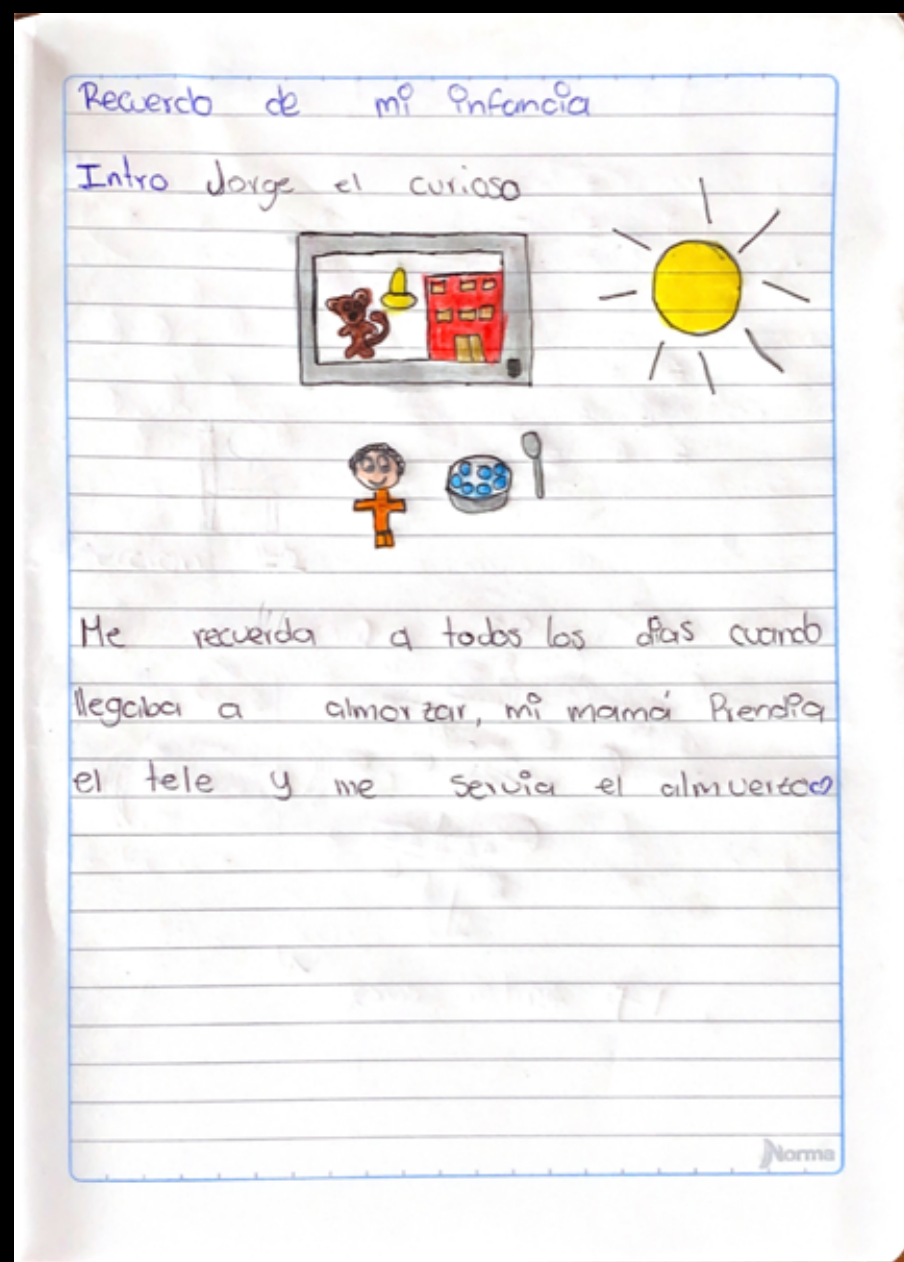 Recuerdo de mi infancia
Intro Jorge el curioso
Me recuerda a todos los dias cuando
llegaba a almorzar, mi mamá Prendia
el tele y me servia el almuerzo
Norma